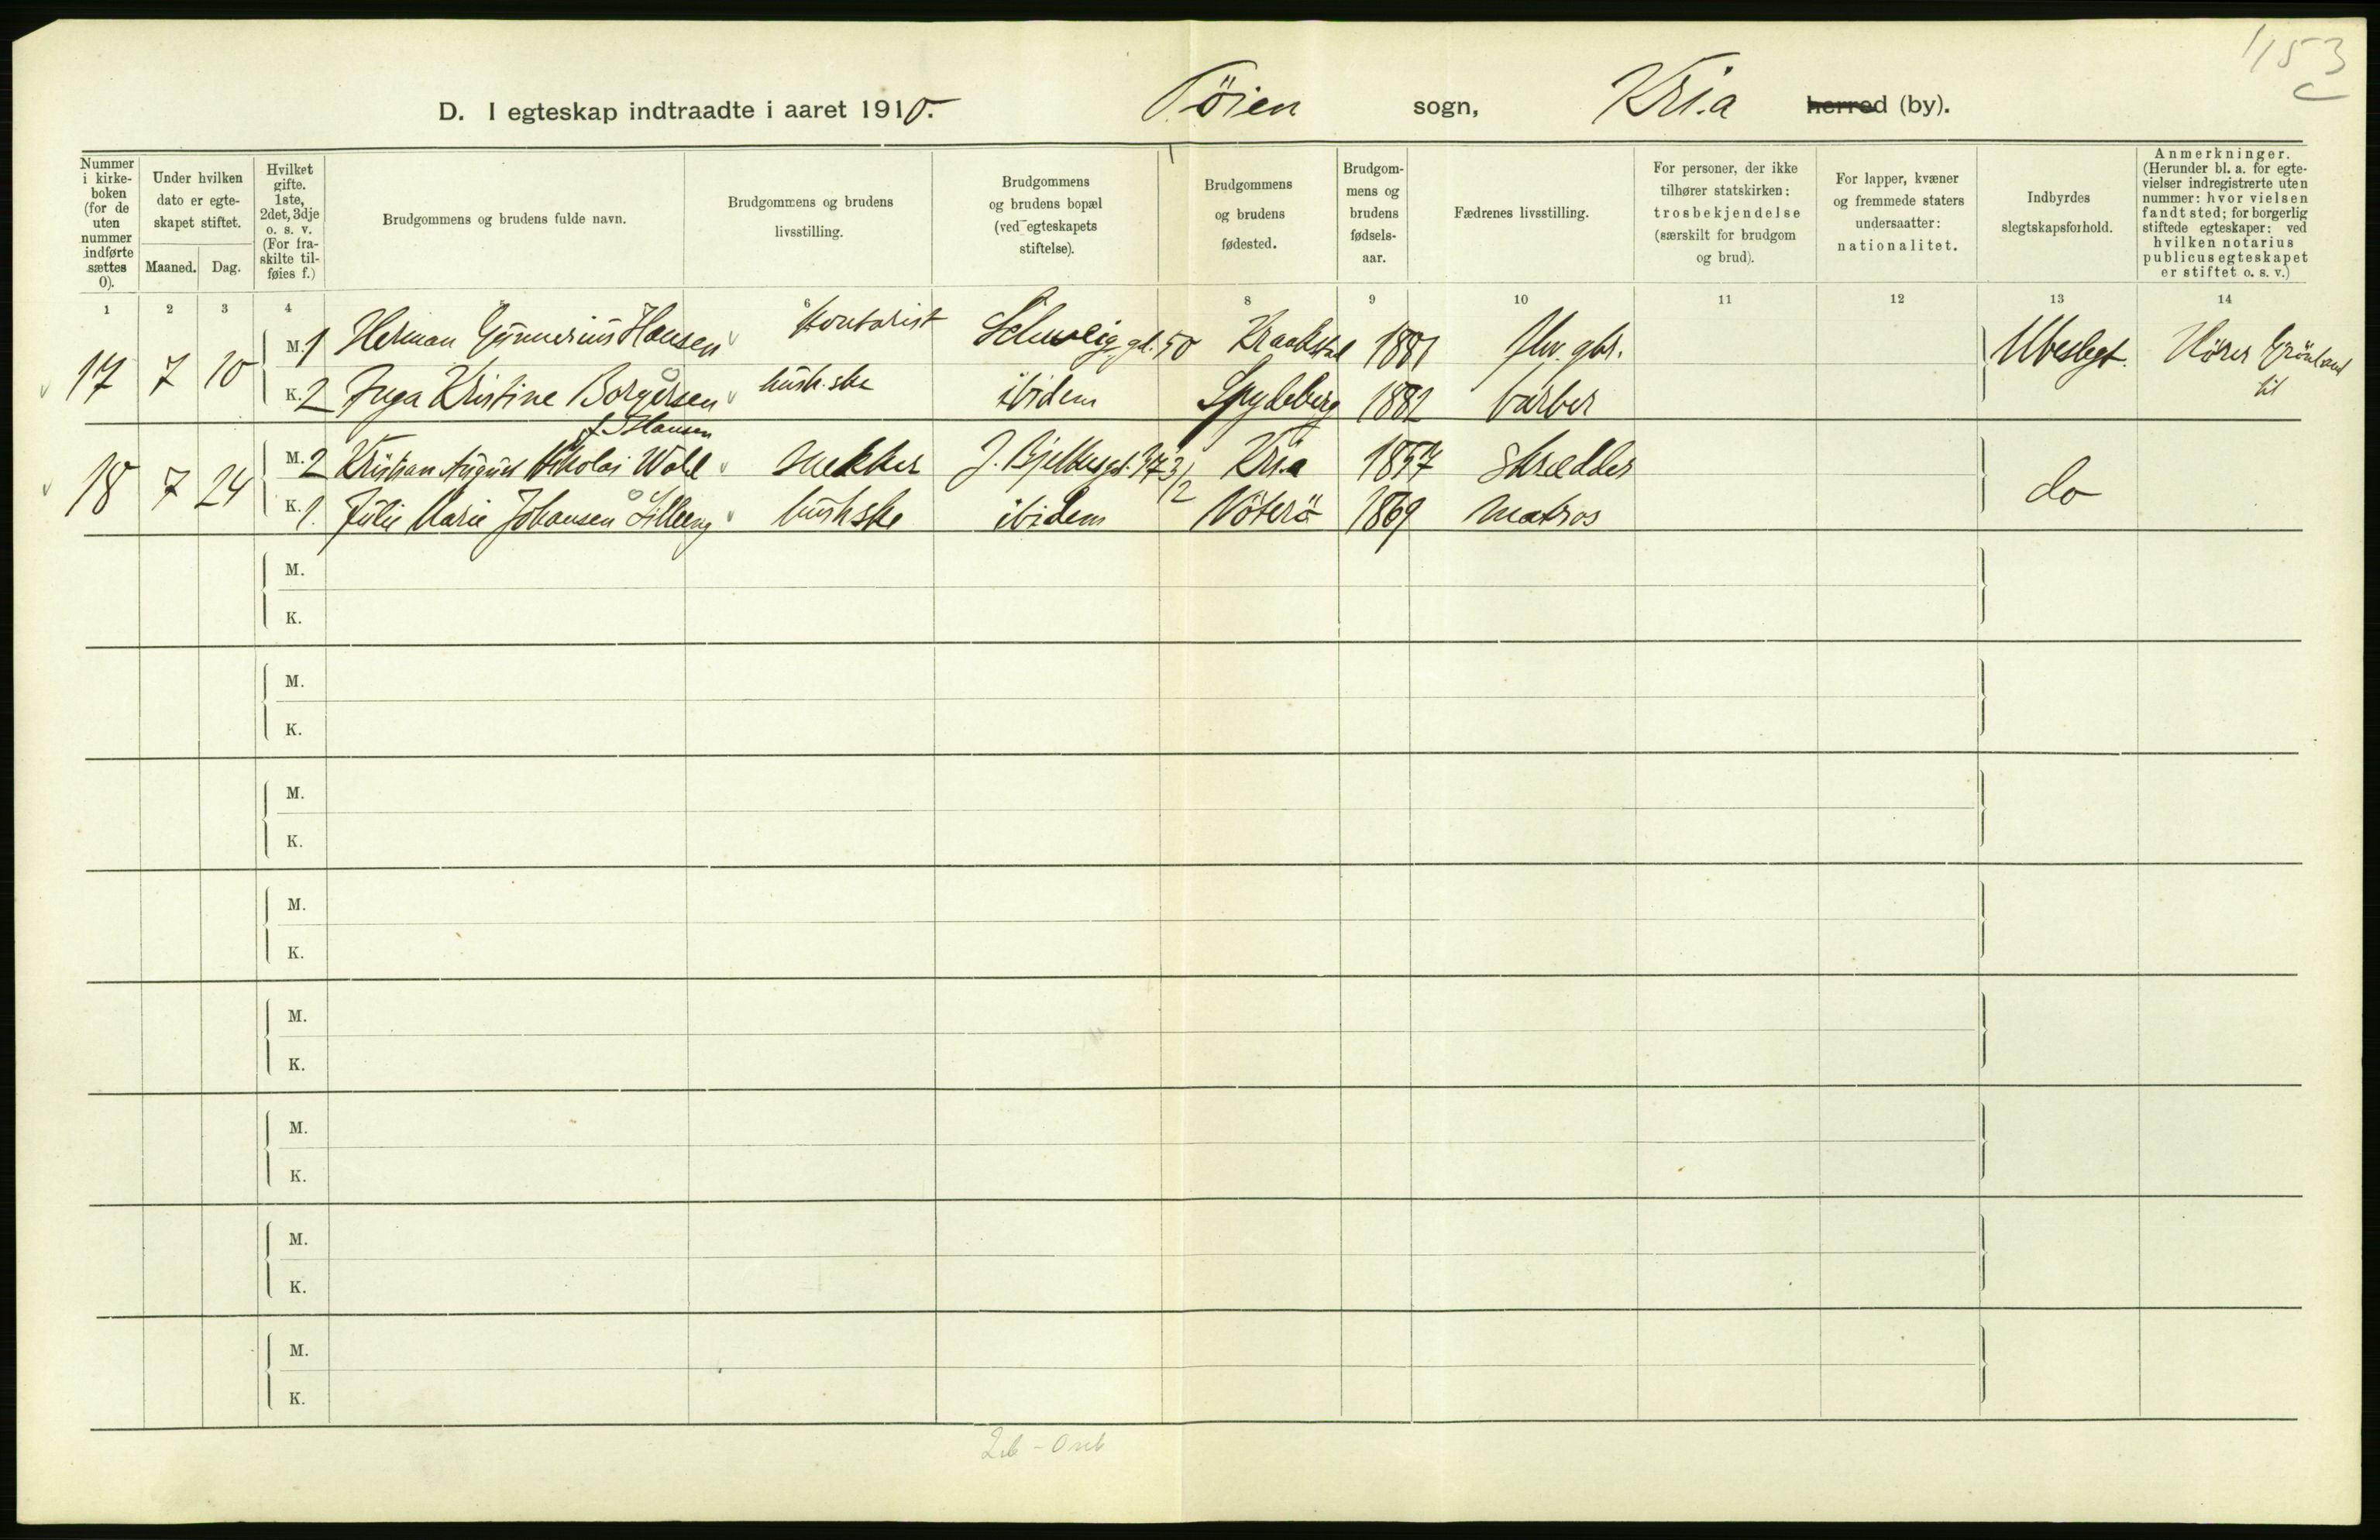 1153
c
D. I egteskap indtraadte i aaret 1910. Tøien sogn, Kr.i.a herred (by).
Nummer i kirke-boken (for de uten nummer indførte sættes 0).
Under hvilken dato er egte-skapet stiftet.
Maaned. Dag.
Hvilket gifte. 1ste, 2det, 3dje o. s. v. (For fra-skilte til-føies f.)
Brudgommens og brudens fulde navn.
Brudgommens og brudens livsstilling.
Brudgommens og brudens bopæl (ved egteskapets stiftelse).
Brudgommens og brudens fødested.
Brudgom-mens og brudens fødsels-aar.
Fædrenes livsstilling.
For personer, der ikke tilhører statskirken: trosbekjendelse (særskilt for brudgom og brud).
For lapper, kvæner og fremmede staters undersaatter: nationalitet.
Indbyrdes slegtskapsforhold.
Anmerkninger. (Herunder bl. a. for egte-vielser indregistrerte uten nummer: hvor vielsen fandt sted; for borgerlig stiftede egteskaper: ved hvilken notarius publicus egteskapet er stiftet o. s. v.)
1 2 3 4 5 6 8 9 10 11 12 13 14
17 7 10 M. 1 Herman Gunnerius Hansen Kontorist Schweig.gd. 50 Kraakstad 1881 fhv. gbr. Ubeslegt. Hører Grönland til
K. 2 Inga Kristine Borgersen hush.ske ibidem Spydeberg 1882 barber
f. Hansen
18 7 24 M. 2 Kristian August Nikolai Wold snekker J. Bjelkesgd. 43/2 Kr.i.a 1857 skrædder do
K. 1. Julie Marie Johansen Lilleeng hushske ibidem Nöterö 1869 matros
M.
K.
M.
K.
M.
K.
M.
K.
M.
K.
M.
K.
M.
K.
M.
K.